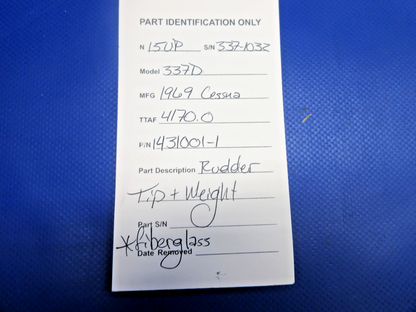 PART IDENTIFICATION ONLY
N 15UP S/N 337-1032
Model 337D
MFG 1969 Cessna
TTAF 4170.0
P/N 1431001-1
Part Description Rudder
Tip + Weight
Part S/N
*fiberglass
Date Removed